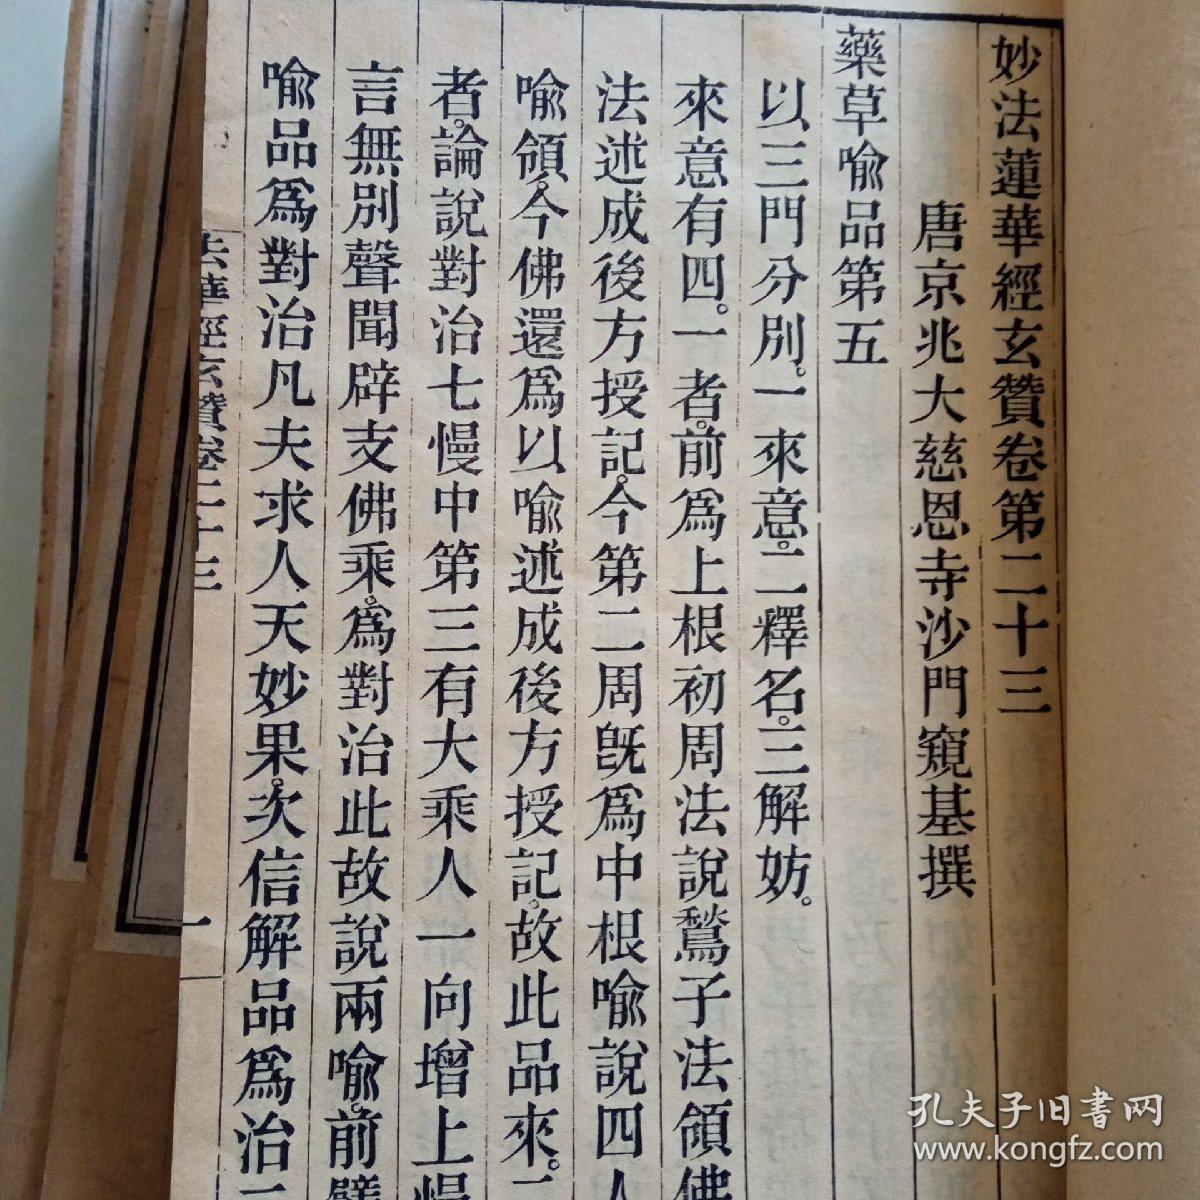 妙法蓮華經玄贊卷第二十三
唐京兆大慈恩寺沙門窺基撰
藥草喻品第五
以三門分別。一來意。二釋名。三解妨。
來意有四。一者。前爲上根初周法說鶖子法領佛
法述成後方授記。今第二周旣爲中根喻說四人
喻領。今佛還爲以喻述成後方授記。故此品來。二
者。論說對治七慢中第三有大乘人一向增上慢
言無別聲聞辟支佛乘。爲對治此故說兩喻。前譬
喻品爲對治凡夫求人天妙果。次信解品爲治二
法華經玄贊卷二十三
一
孔夫子旧書网
www.kongfz.com